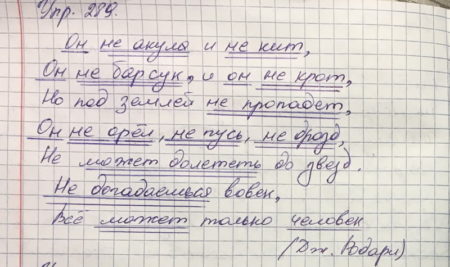 Упр. 289.
Он не акула и не кит,
Он не барсук, и он не крот,
Но под землей не пропадет,
Он не орёл, не гусь, не дрозд,
Не может долететь до звезд.
Не догадаешься вовек,
Всё может только человек
(Дж. Родари)